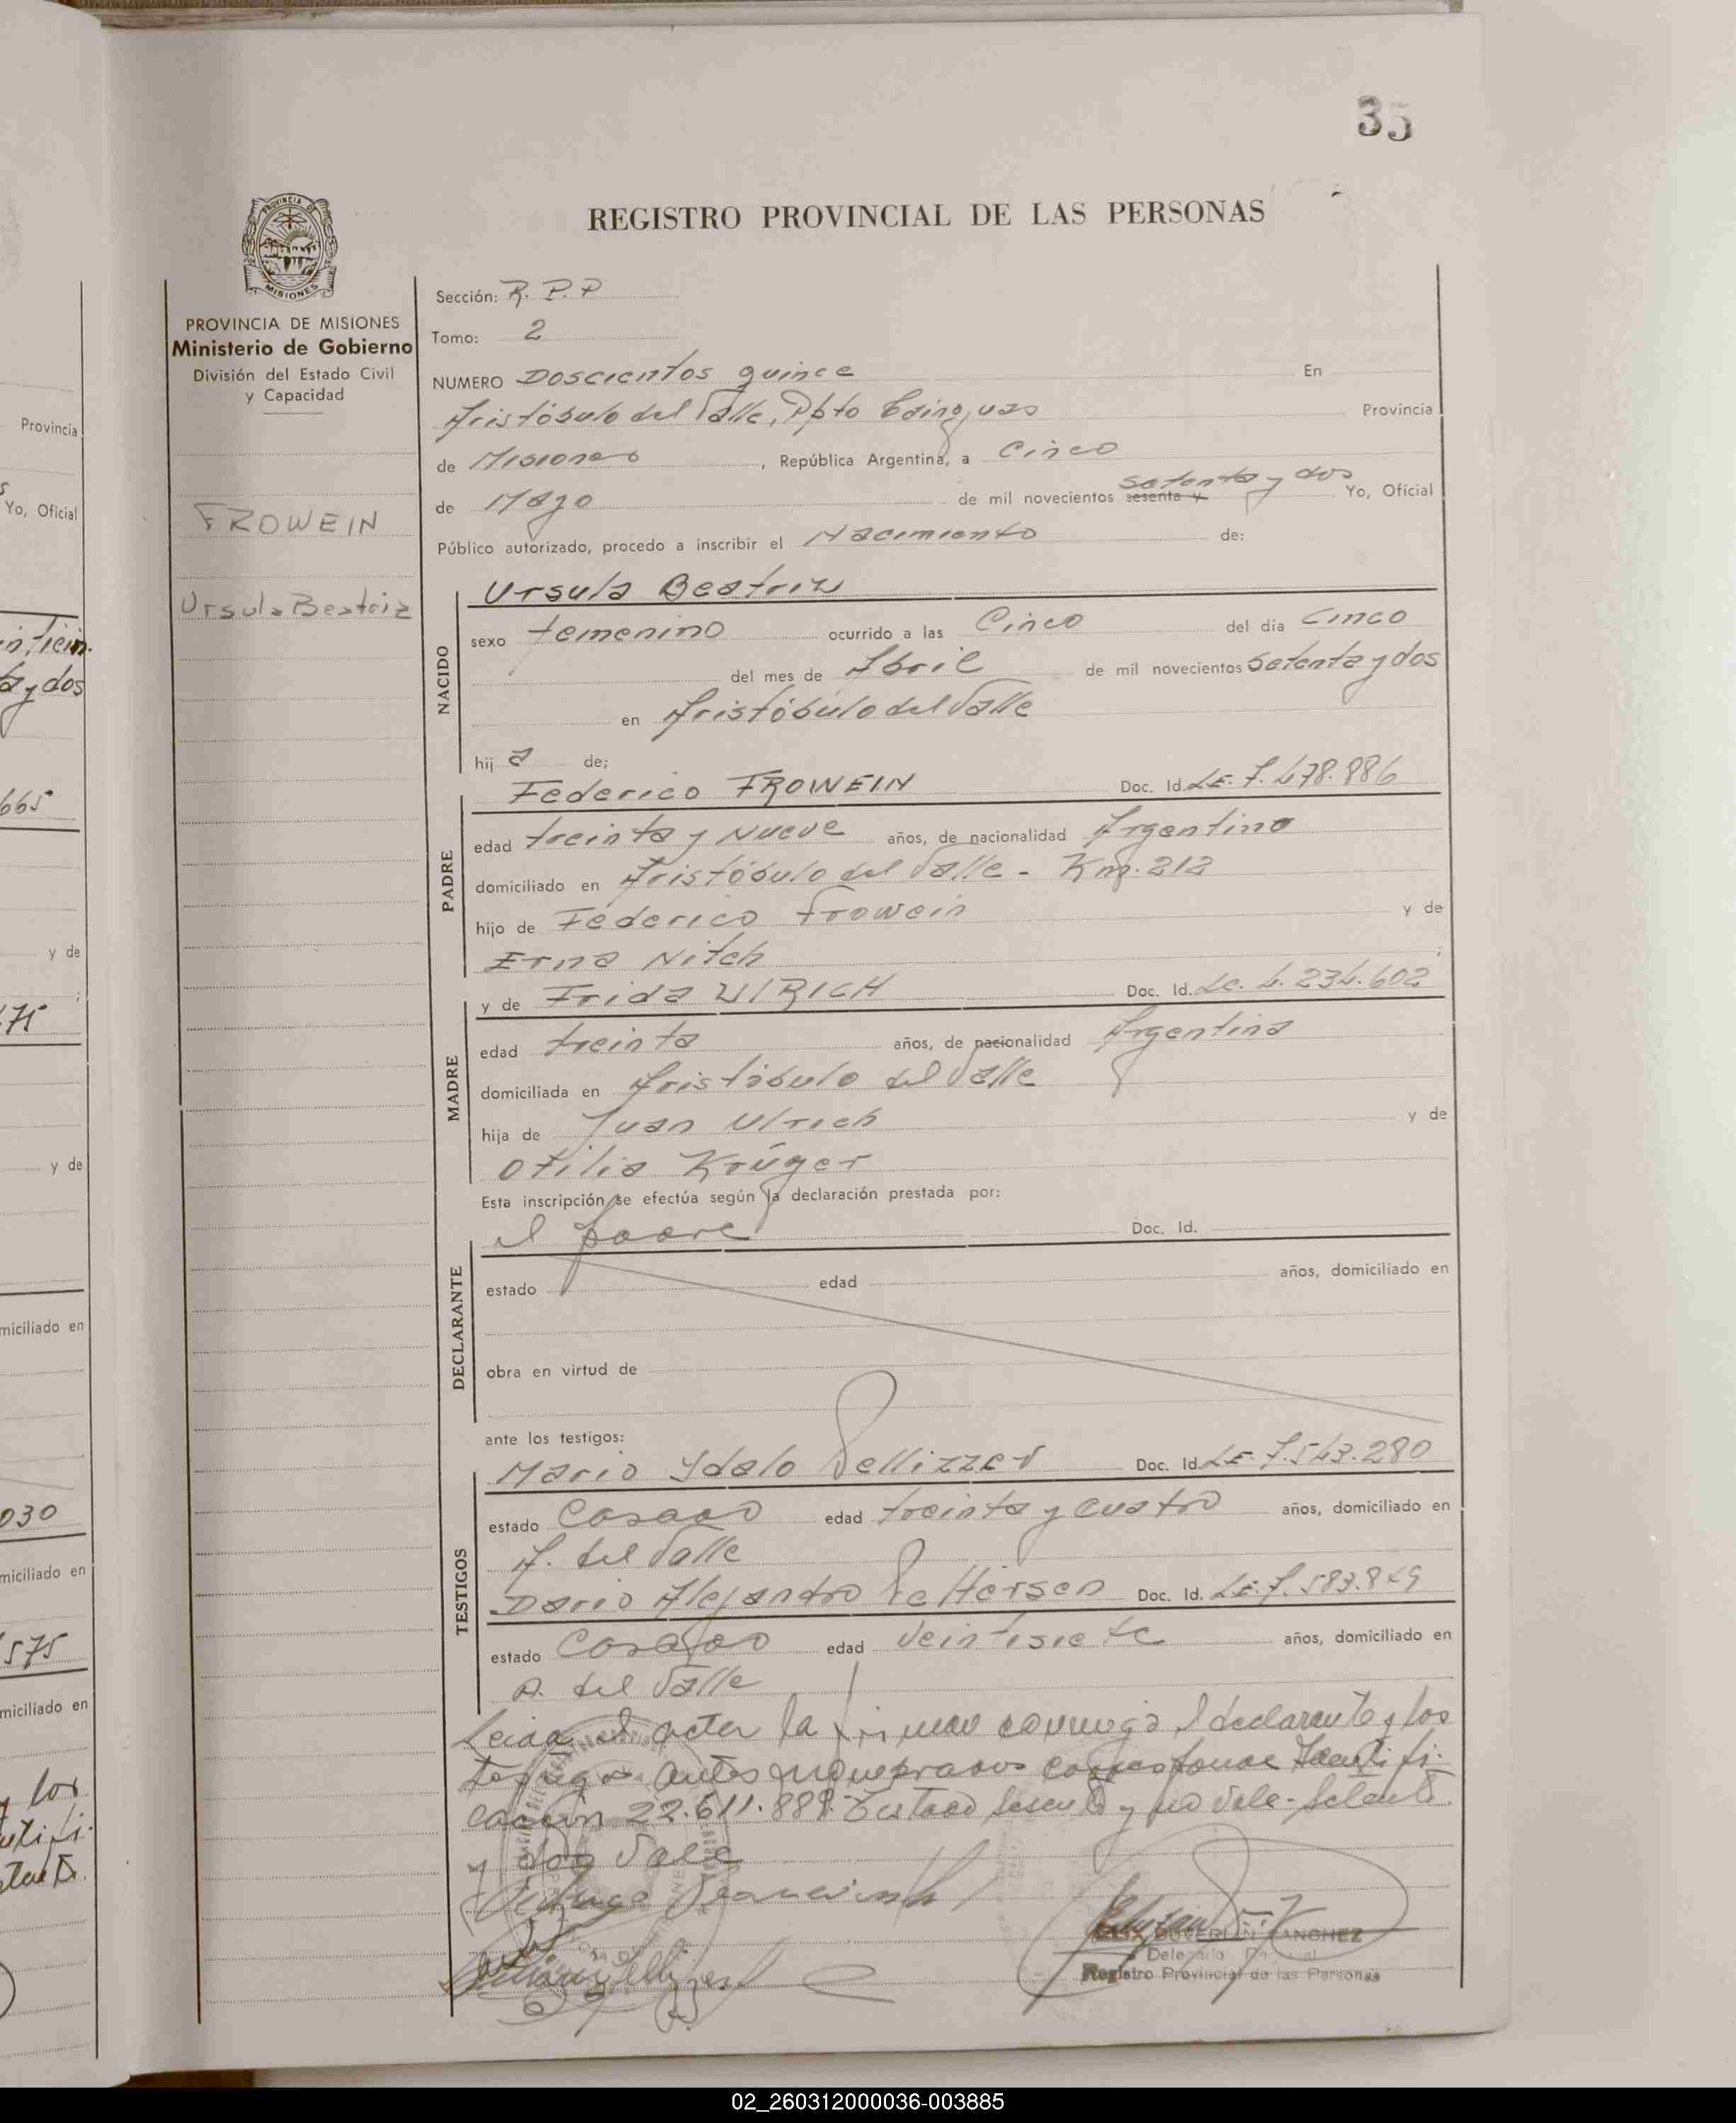 35
REGISTRO PROVINCIAL DE LAS PERSONAS
PROVINCIA DE MISIONES
Ministerio de Gobierno
División del Estado Civil
y Capacidad
FROWEIN
Ursula Beatriz
Sección: R. P. P
Tomo: 2
NUMERO Doscientos quince En
Aristóbulo del Valle, Dpto Cainguas Provincia
de Misiones, República Argentina, a Cinco
de Mayo de mil novecientos sesenta y setenta y dos Yo, Oficial
Público autorizado, procedo a inscribir el Nacimiento de:
Ursula Beatriz
NACIDO
sexo femenino ocurrido a las Cinco del día Cinco
del mes de Abril de mil novecientos setenta y dos
en Aristóbulo del Valle
hij a de;
Federico FROWEIN Doc. Id. LE. 7.478.886
PADRE
edad treinta y Nueve años, de nacionalidad Argentino
domiciliado en Aristóbulo del Valle - Km. 212
hijo de Federico Frowein y de
Erna Nitch
y de Frida ULRICH Doc. Id. LC. 4.234.602
MADRE
edad treinta años, de nacionalidad Argentina
domiciliada en Aristóbulo del Valle
hija de Juan Ulrich y de
Otilia Krüger
Esta inscripción se efectúa según la declaración prestada por:
el padre Doc. Id.
DECLARANTE
estado edad años, domiciliado en
obra en virtud de
ante los testigos:
Mario Ydalo Pellizzer Doc. Id. LE. 7.543.280
TESTIGOS
estado Casado edad treinta y cuatro años, domiciliado en
A. del Valle
Dario Alejandro Pettersen Doc. Id. LE. 7.583.849
estado Casado edad Veintisiete años, domiciliado en
A. del Valle
Leida el acta la firman conmigo el declarante y los
testigos antes nombrados corresponde Identifi-
cación 22.611.889. Testado sesenta y no Vale - Setenta
y dos Vale
SANCHEZ
Registro Provincial de las Personas
02_260312000036-003885